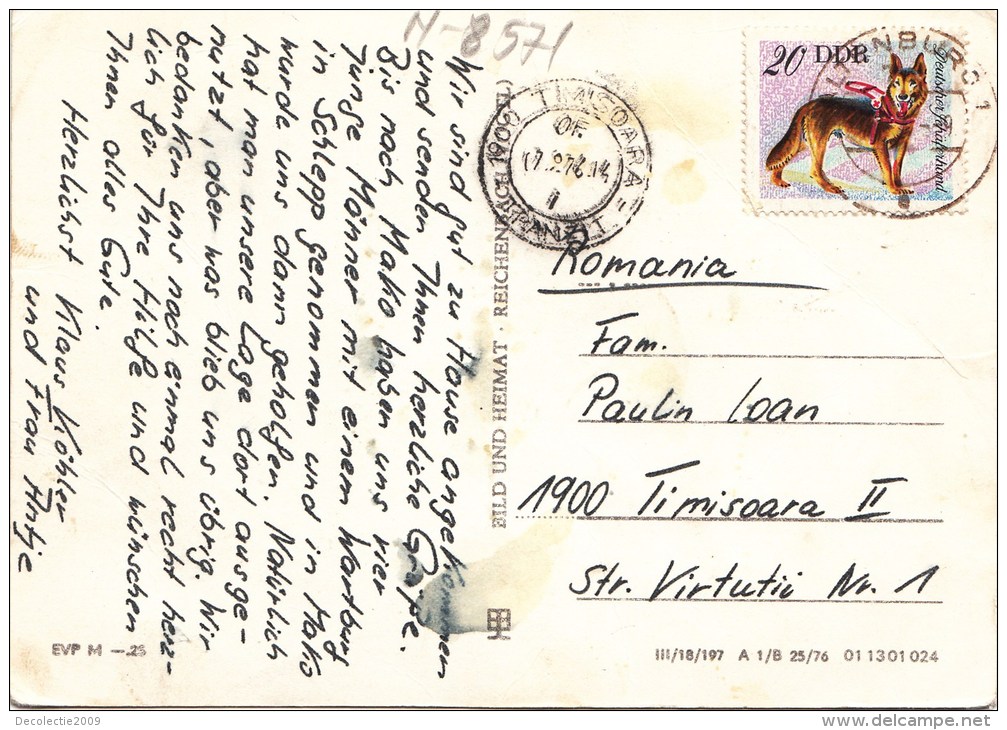 N-8571
Wir sind gut zu Hause angekommen
und senden Ihnen herzliche Grüße.
Bis nach Mako haben uns vier
junge Männer mit einem Wartburg
in Schlepp genommen und in Mako
wurde uns dann geholfen. Natürlich
hat man unsere Lage dort ausge-
nutzt, aber was blieb uns übrig. Wir
bedanken uns noch einmal recht herz-
lich für Ihre Hilfe und wünschen
Ihnen alles Gute.
Herzlichst Klaus Köhler
und Frau Antje
EVP M –.25
BILD UND HEIMAT · REICHENBACH (VOGTL)
1900 TIMISOARA
OF.
TRANZIT
20 DDR
Deutscher Schäferhund
Romania
Fam.
Paulin Ioan
1900 Timisoara II
Str. Virtutii Nr. 1
III/18/197 A 1/B 25/76 01 13 01 024
Decolectie2009
delcampe.net